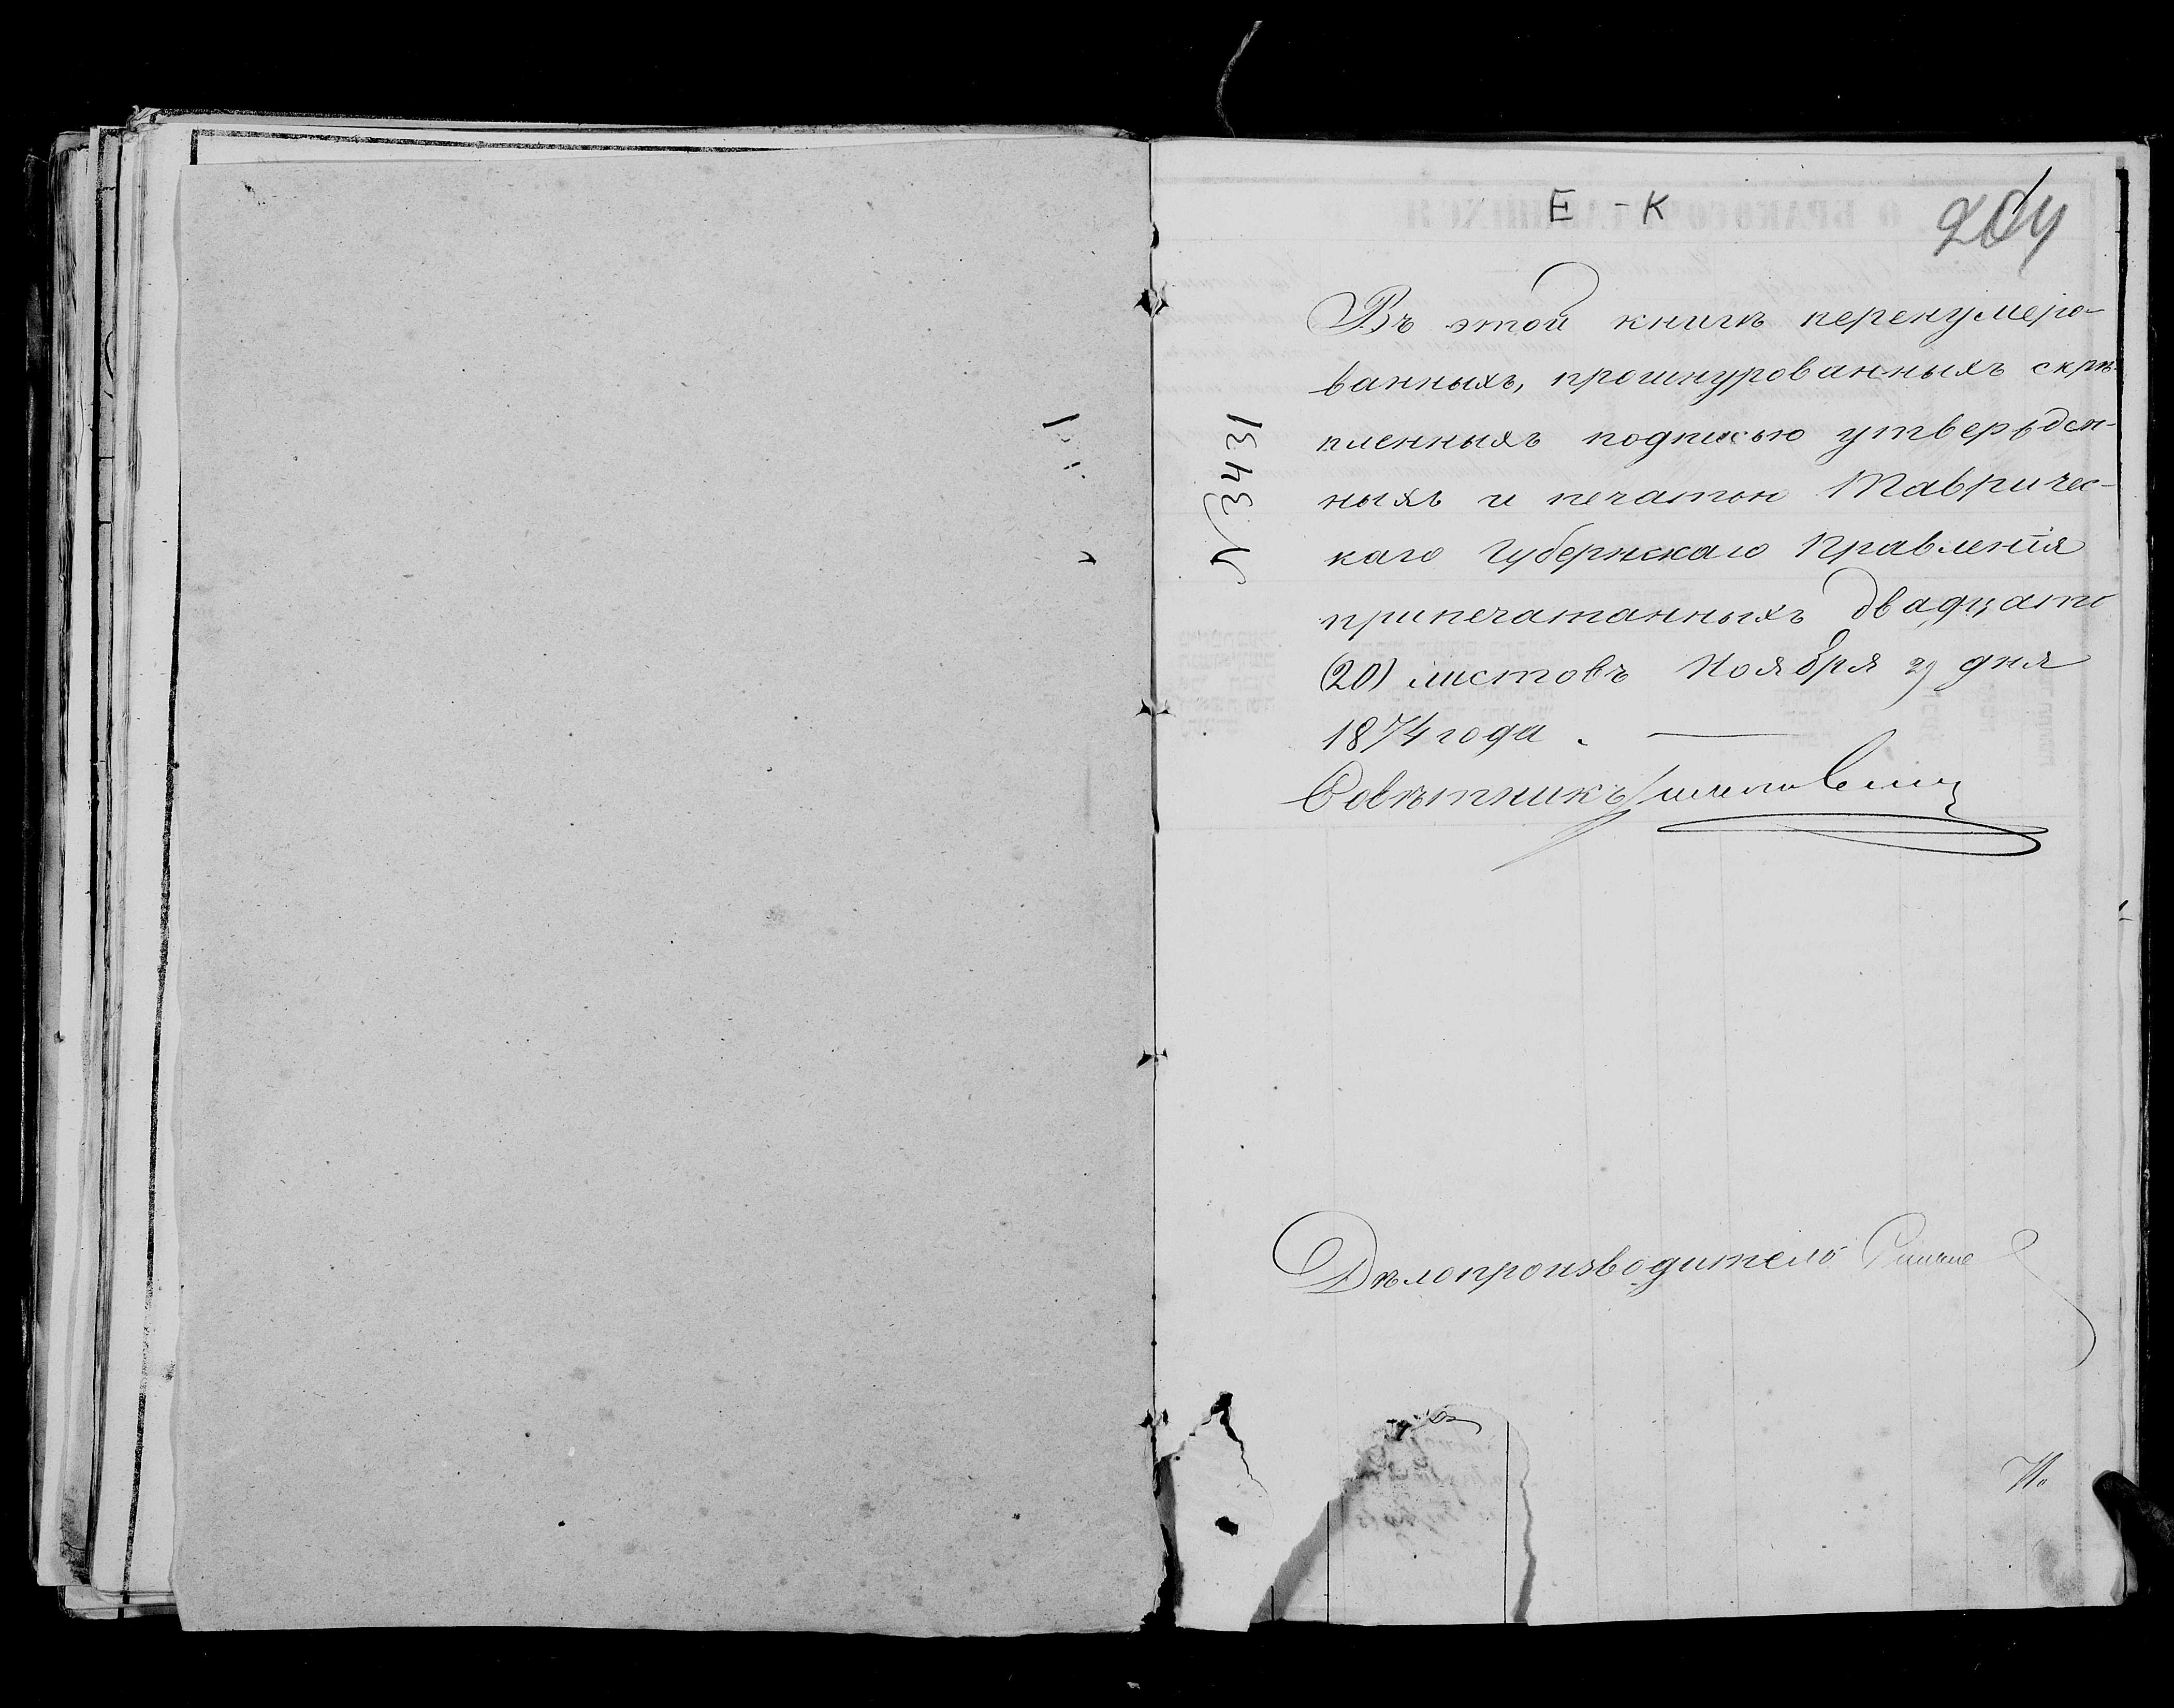 Е - К
204
Въ этой книгѣ перенумеро-
ванныхъ, прошнурованныхъ скрѣ-
пленныхъ подписью утвержден-
ныхъ и печатью Тавричес-
каго Губернскаго Правленія
припечатанныхъ двадцать
(20) листовъ Ноября 29 дня
1874 года.
Совѣтникъ
Дѣлопроизводитель
№ 3431